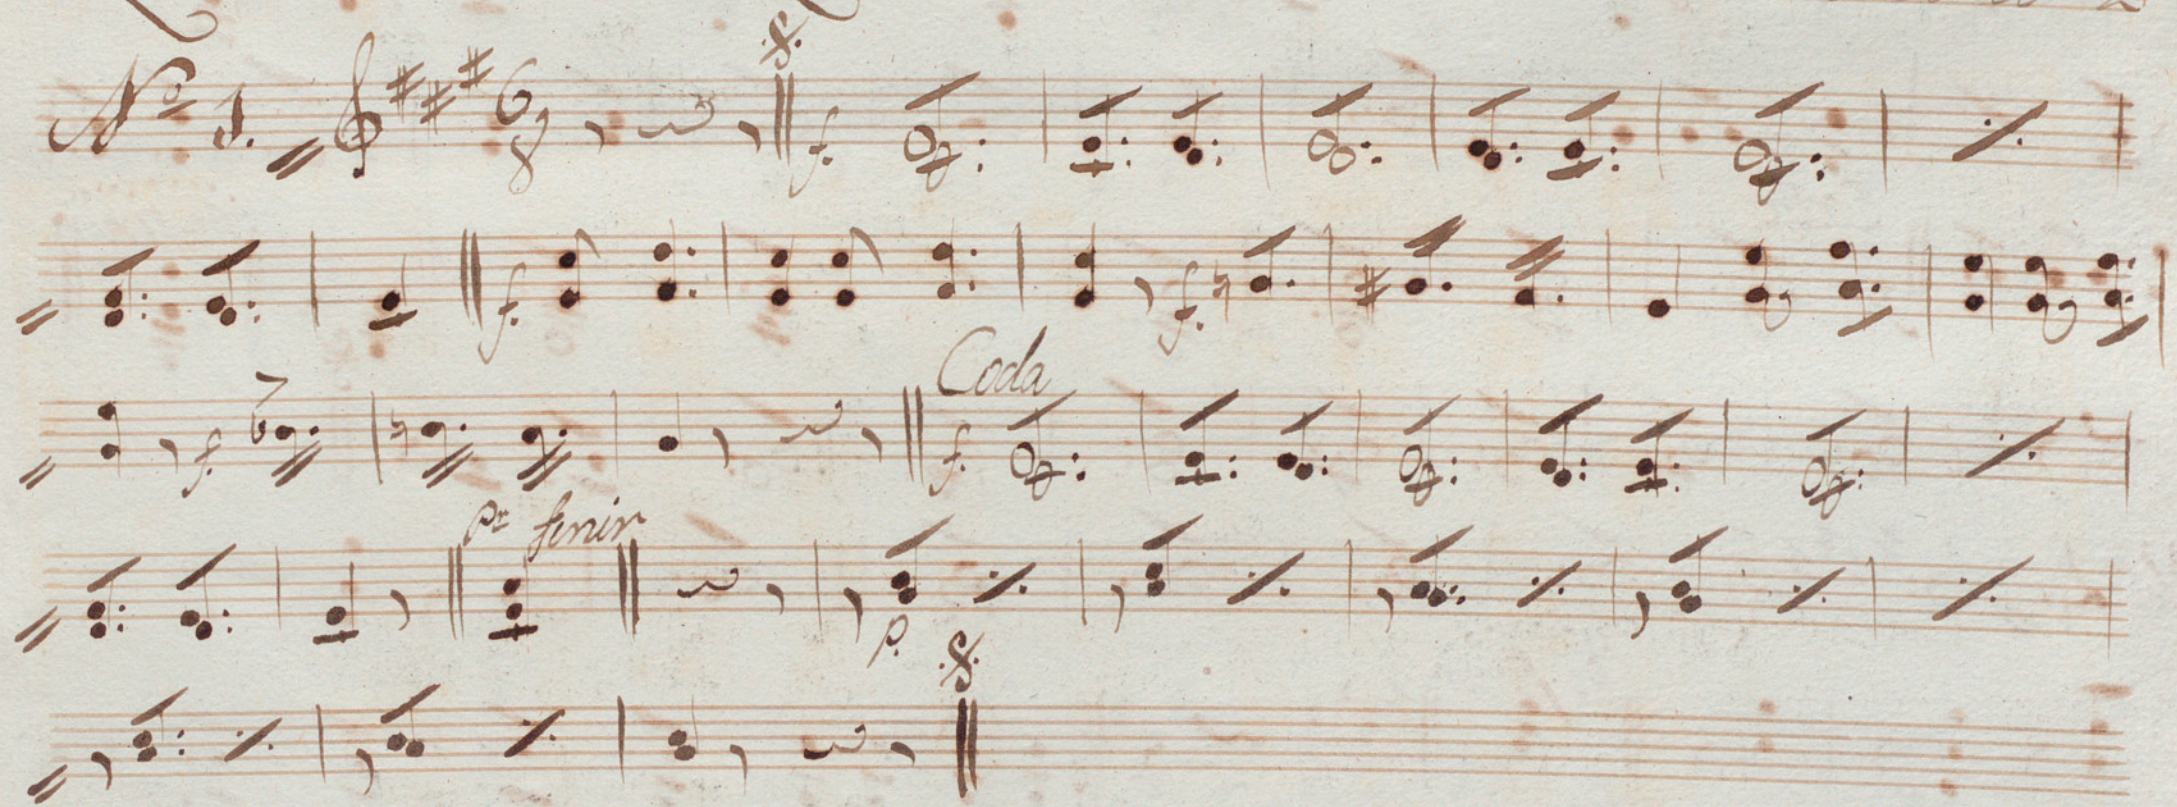 Nº 1. 6/8 f.
f. f.
f. Coda f.
pr finir p.